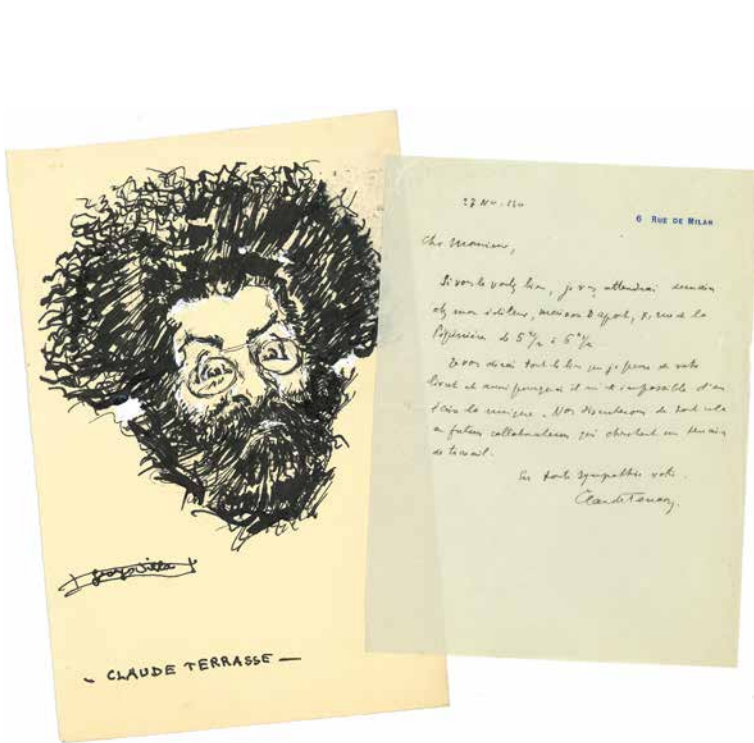 Georges Villa
- CLAUDE TERRASSE -
27 Nov.
6 RUE DE MILAN
Cher Monsieur,
Si vous le voulez bien, je vous attendrai demain
chez mon éditeur, maison Dapot, 8, rue de la
Pépinière de 5 h ½ à 6 h ½
Je vous dirai tout le bien que je pense de votre
livret et aussi pourquoi il m'est impossible d'en
faire la musique. Nous discuterons de tout cela
en futurs collaborateurs qui cherchent un terrain
de travail.
En toute sympathie votre.
Claude Terrasse.